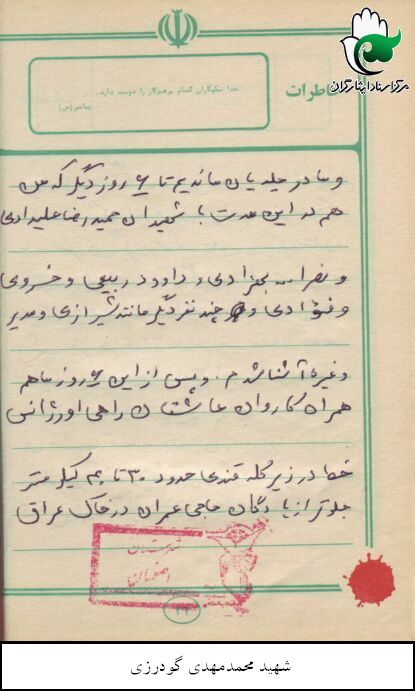 مرکز اسناد ایثارگران
خاطرات
خدا نیکوکاران گمنام پرهیزکار را دوست دارد.
پیامبر(ص)
و ما در جلدیان ماندیم تا ۶ روز دیگر که من
هم در این مدت با شهیدان حمیدرضا علیدادی
و نصرا... بهزادی و داود ربیعی و خسروی
و فوادی و چند نفر دیگر مانند شیرازی و مدیر
و غیره آشنا شدم. و پس از این ۶ روز ما هم
همراه کاروان عاشقان راهی اورژانس
خط در زیر کله قندی حدود ۳۰ تا ۴۰ کیلومتر
جلوتر از پادگان حاجی عمران در خاک عراق
شهرستان
اصفهان
شهید محمدمهدی گودرزی